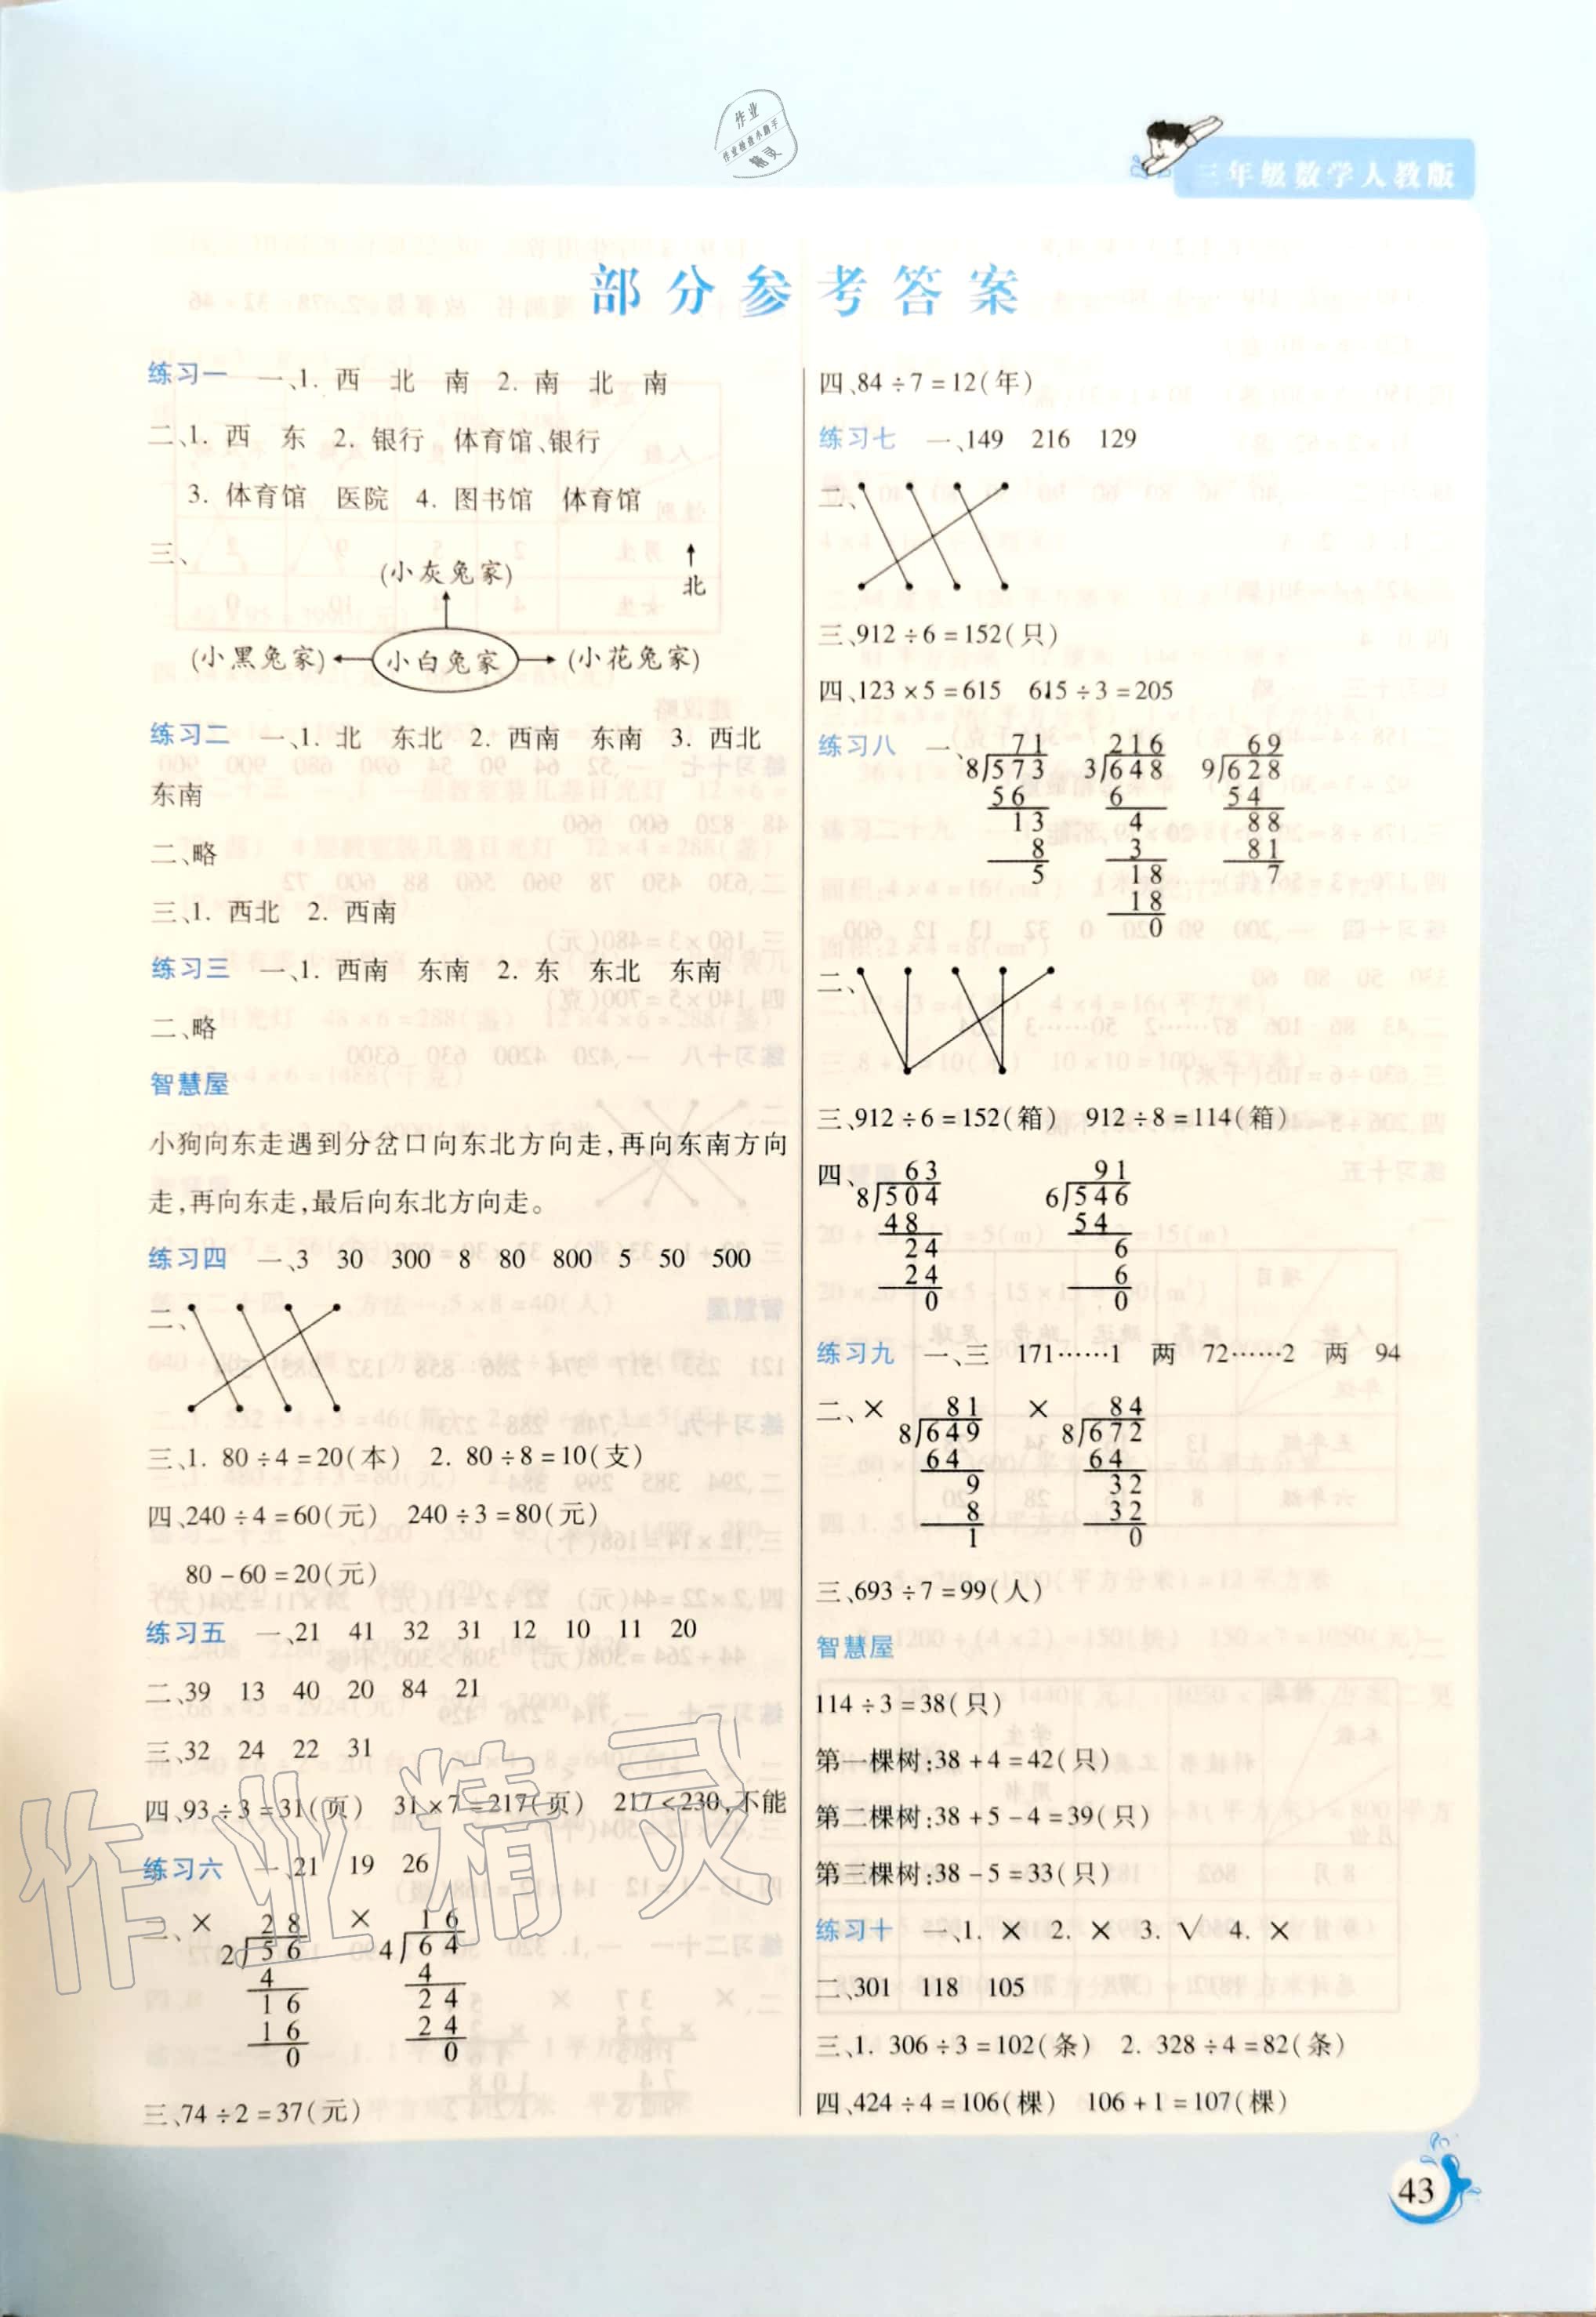 作业
作业检查小助手
精灵
三年级数学人教版
部分参考答案
练习一 一、1. 西 北 南 2. 南 北 南
二、1. 西 东 2. 银行 体育馆、银行
3. 体育馆 医院 4. 图书馆 体育馆
三、
(小灰兔家)
北
(小黑兔家) 小白兔家 (小花兔家)
练习二 一、1. 北 东北 2. 西南 东南 3. 西北
东南
二、略
三、1. 西北 2. 西南
练习三 一、1. 西南 东南 2. 东 东北 东南
二、略
智慧屋
小狗向东走遇到分岔口向东北方向走,再向东南方向
走,再向东走,最后向东北方向走。
练习四 一、3 30 300 8 80 800 5 50 500
二、
三、1. 80÷4=20(本) 2. 80÷8=10(支)
四、240÷4=60(元) 240÷3=80(元)
80-60=20(元)
练习五 一、21 41 32 31 12 10 11 20
二、39 13 40 20 84 21
三、32 24 22 31
四、93÷3=31(页) 31×7=217(页) 217<230,不能
练习六 一、21 19 26
二、× 28 × 16
2)56 4)64
4 4
16 24
16 24
0 0
三、74÷2=37(元)
四、84÷7=12(年)
练习七 一、149 216 129
二、
三、912÷6=152(只)
四、123×5=615 615÷3=205
练习八 一、 71 216 69
8)573 3)648 9)628
56 6 54
13 4 88
8 3 81
5 18 7
18
0
二、
三、912÷6=152(箱) 912÷8=114(箱)
四、 63 91
8)504 6)546
48 54
24 6
24 6
0 0
练习九 一、三 171……1 两 72……2 两 94
二、× 81 × 84
8)649 8)672
64 64
9 32
8 32
1 0
三、693÷7=99(人)
智慧屋
114÷3=38(只)
第一棵树:38+4=42(只)
第二棵树:38+5-4=39(只)
第三棵树:38-5=33(只)
练习十 一、1. × 2. × 3. √ 4. ×
二、301 118 105
三、1. 306÷3=102(条) 2. 328÷4=82(条)
四、424÷4=106(棵) 106+1=107(棵)
作业精灵
43